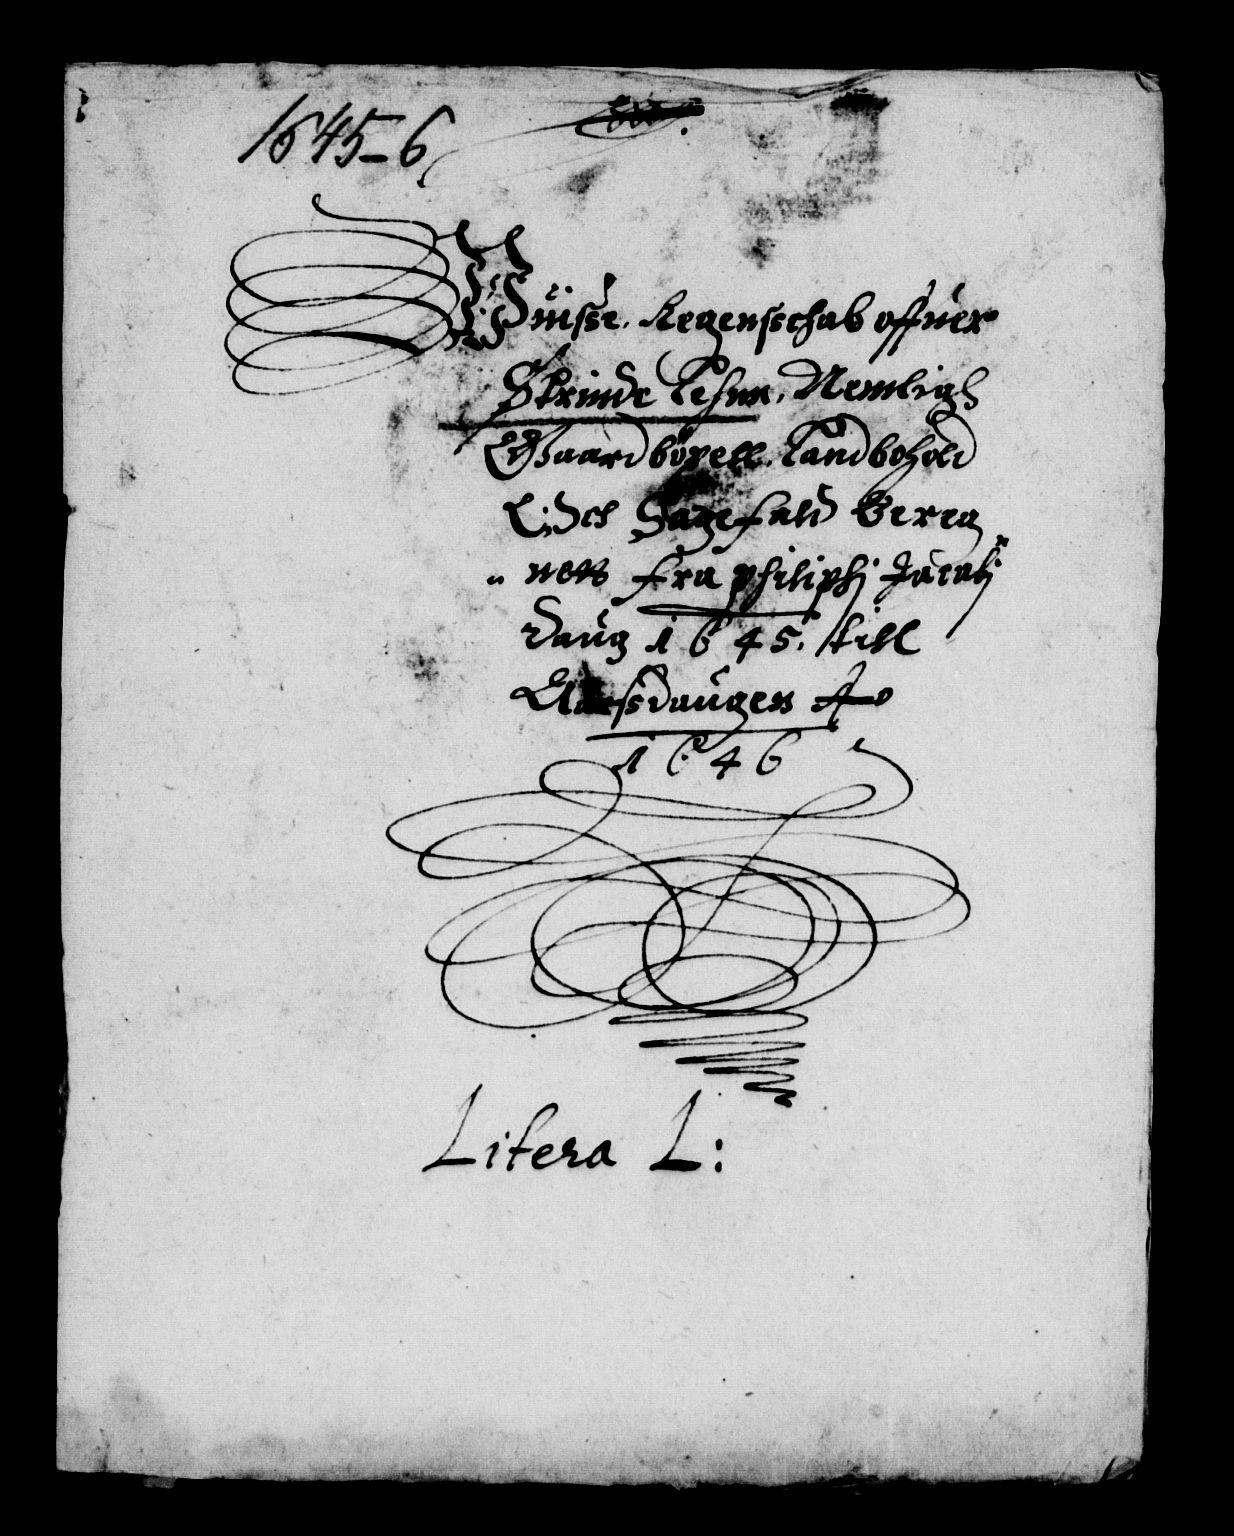 1645-6
Wüisse. Regensschab offuer
Skrinde Lehnn, Nemligh
Gaardböxell. Landbohold
Sagefald Bereg
nett fra philiphi Jacobi
daug 1645. till
Aarssdaugen
1646
Litera L: